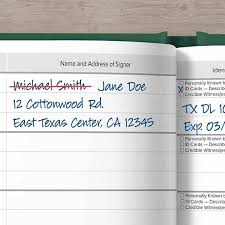 Name and Address of Signer
Michael Smith Jane Doe
12 Cottonwood Rd.
East Texas Center, CA 12345
Iden
Personally Known
ID Cards — Describ
Credible Witness(e
TX DL 10
Exp 03/
Personally Known
ID Cards — Describ
Credible Witness(e
Personally Known
ID Cards — Describ
Credible Witness(e